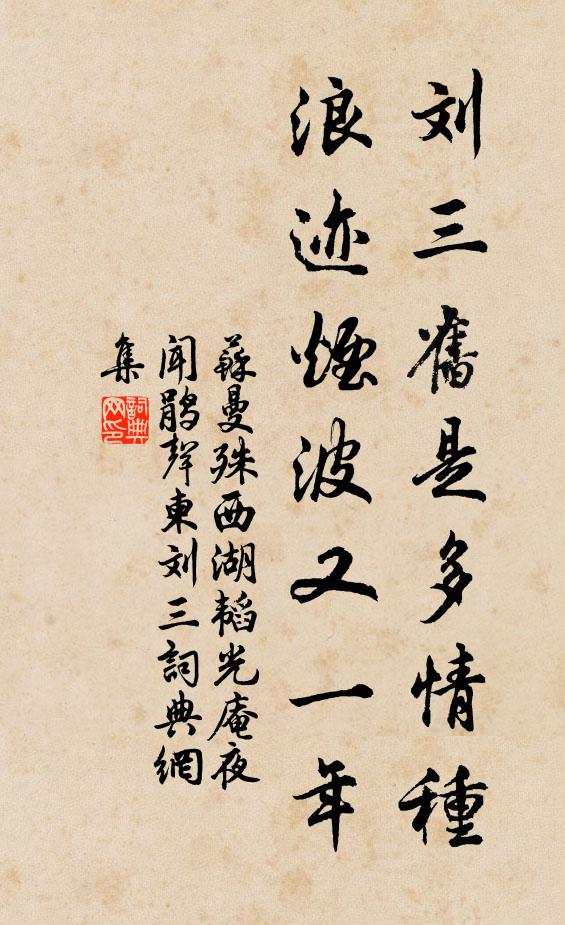 刘三舊是多情種
浪迹煙波又一年
蘇曼殊西湖韜光庵夜
聞鵑聲柬刘三詞典網
集
詞典
网印